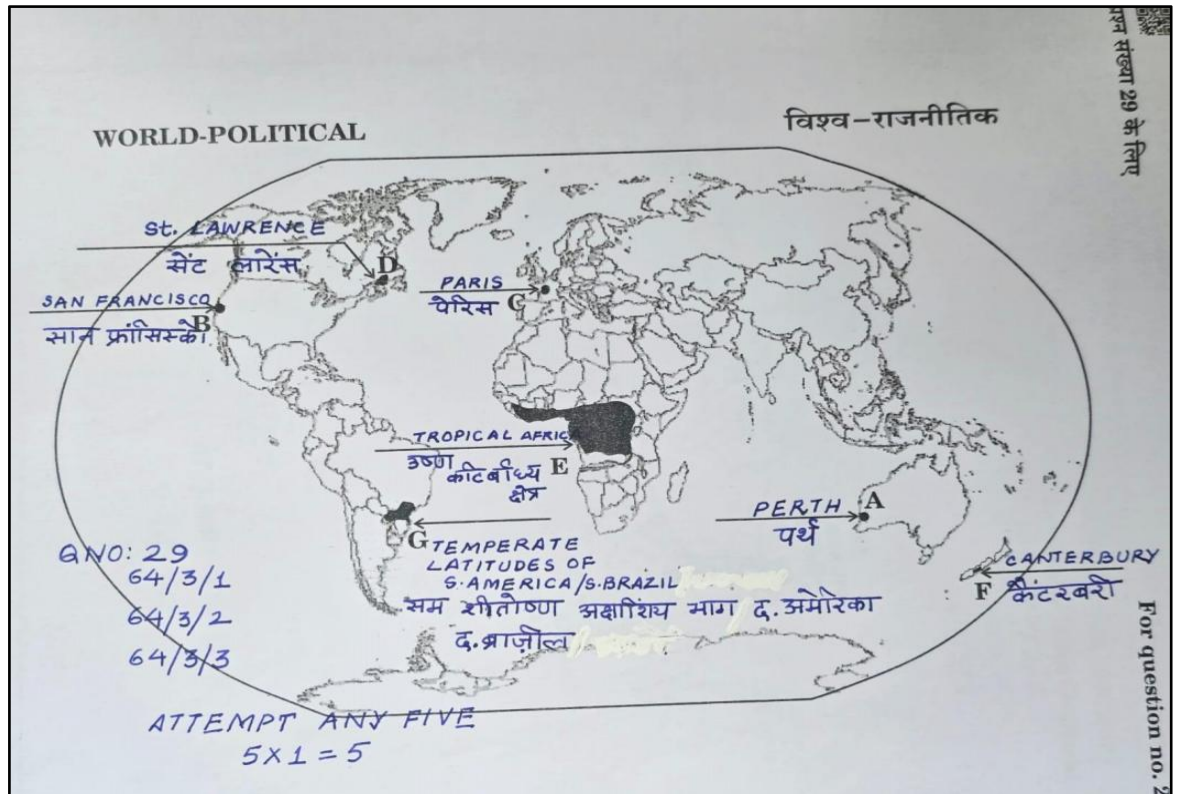 प्रश्न संख्या 29 के लिए
WORLD-POLITICAL
विश्व-राजनीतिक
St. LAWRENCE
सेंट लारेंस
D
SAN FRANCISCO
B
सान फ्रांसिस्को
PARIS
C
पेरिस
TROPICAL AFRIC
E
उष्ण
कटिबंधिय
क्षेत्र
PERTH
A
पर्थ
G
TEMPERATE
LATITUDES OF
S.AMERICA/S.BRAZIL
सम शीतोष्ण अक्षांशिय भाग द. अमेरिका
द. ब्राज़ील
CANTERBURY
F
कैंटरबरी
QNO: 29
64/3/1
64/3/2
64/3/3
ATTEMPT ANY FIVE
5×1=5
For question no. 2